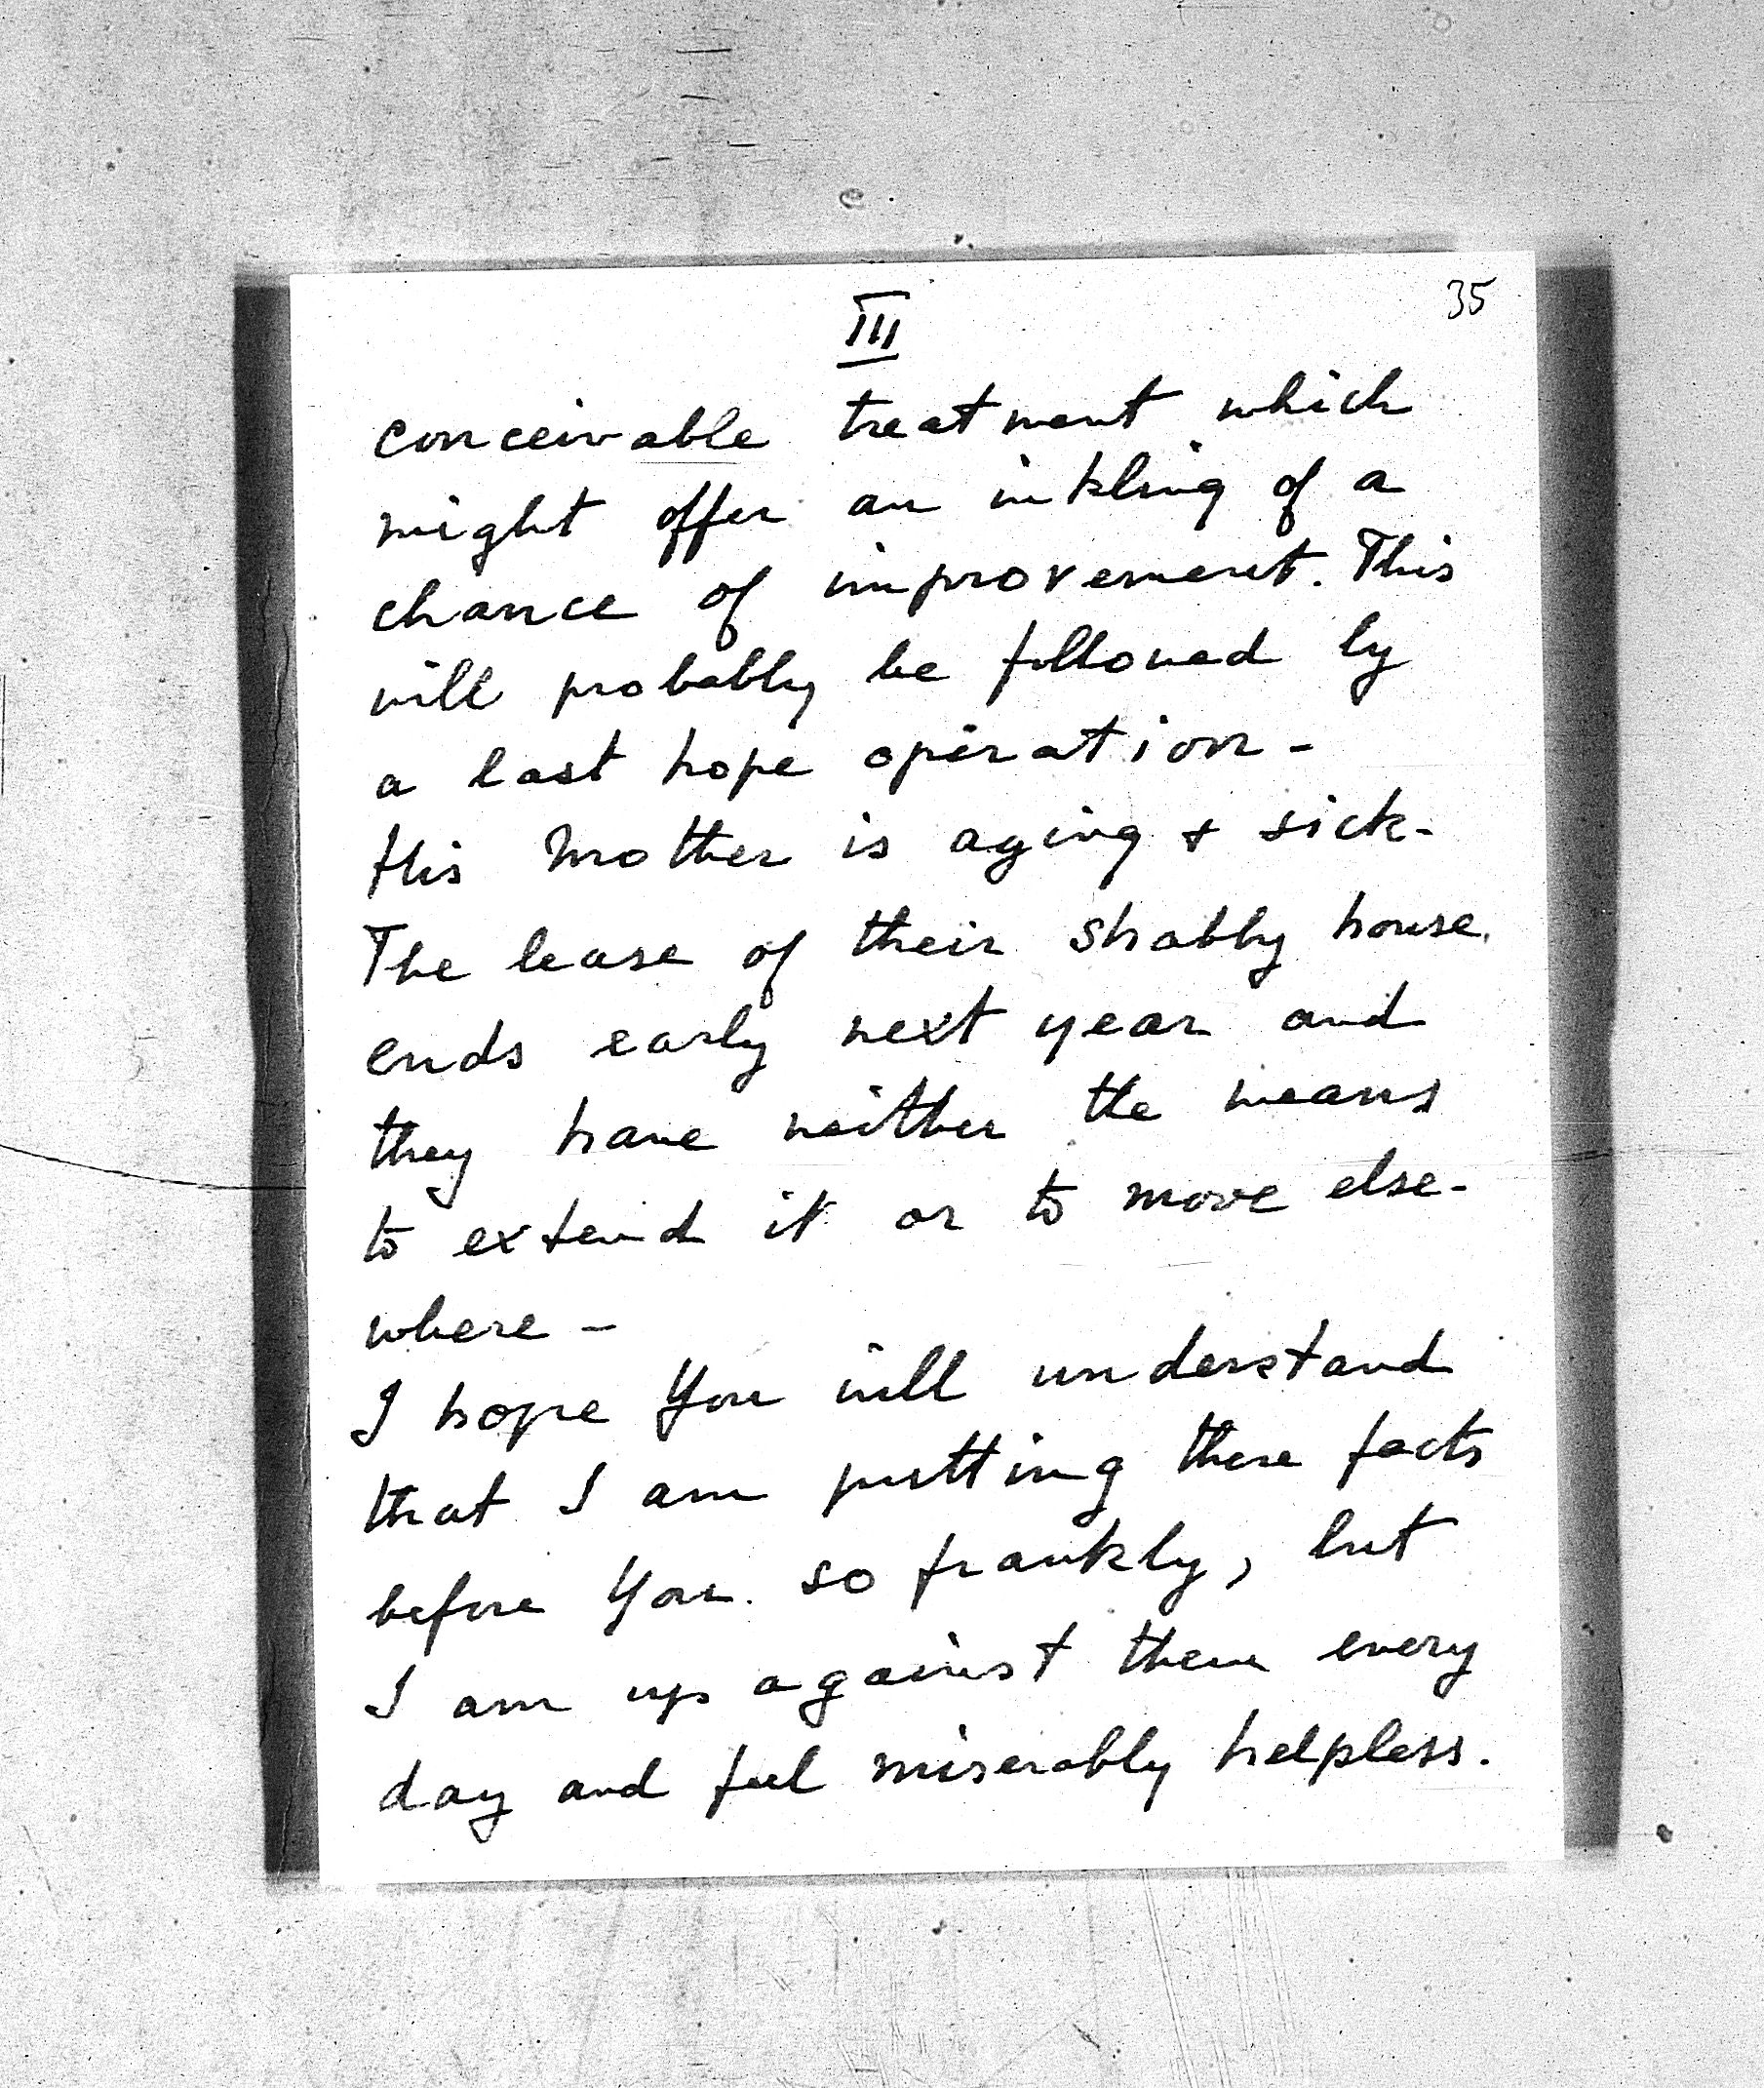 35
III
conceivable treatment which
might offer an inkling of a
chance of improvement. This
will probably be followed by
a last hope operation -
His Mother is aging + sick -
The lease of their shabby house
ends early next year and
they have neither the means
to extend it or to move else-
where -
I hope You will understand
that I am putting these facts
before You so frankly, but
I am up against them every
day and feel miserably helpless.